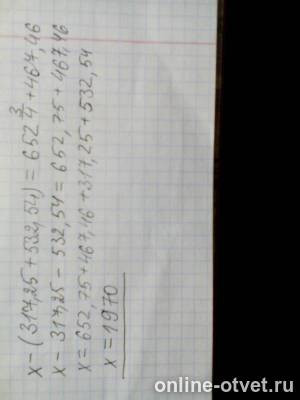 x - (317,25 + 532,54) = 652 3/4 + 467,46
x - 317,25 - 532,54 = 652,75 + 467,46
x = 652,75 + 467,46 + 317,25 + 532,54
x = 1970
online-otvet.ru